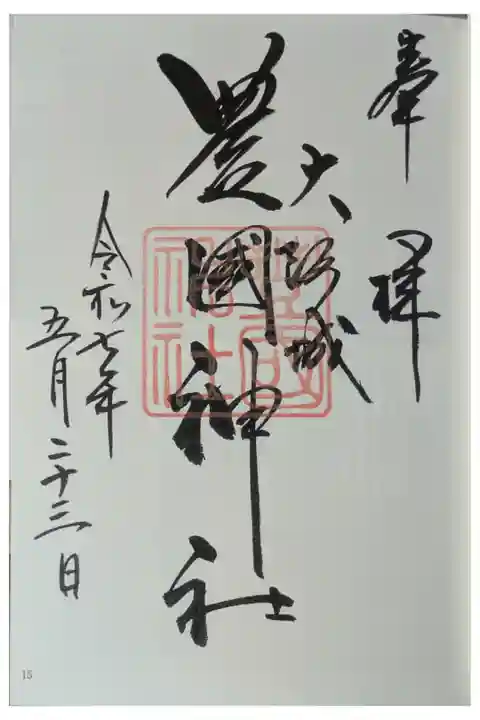 奉拝
大阪城
豊國神社
豊國
神社
令和七年
五月二十三日
15